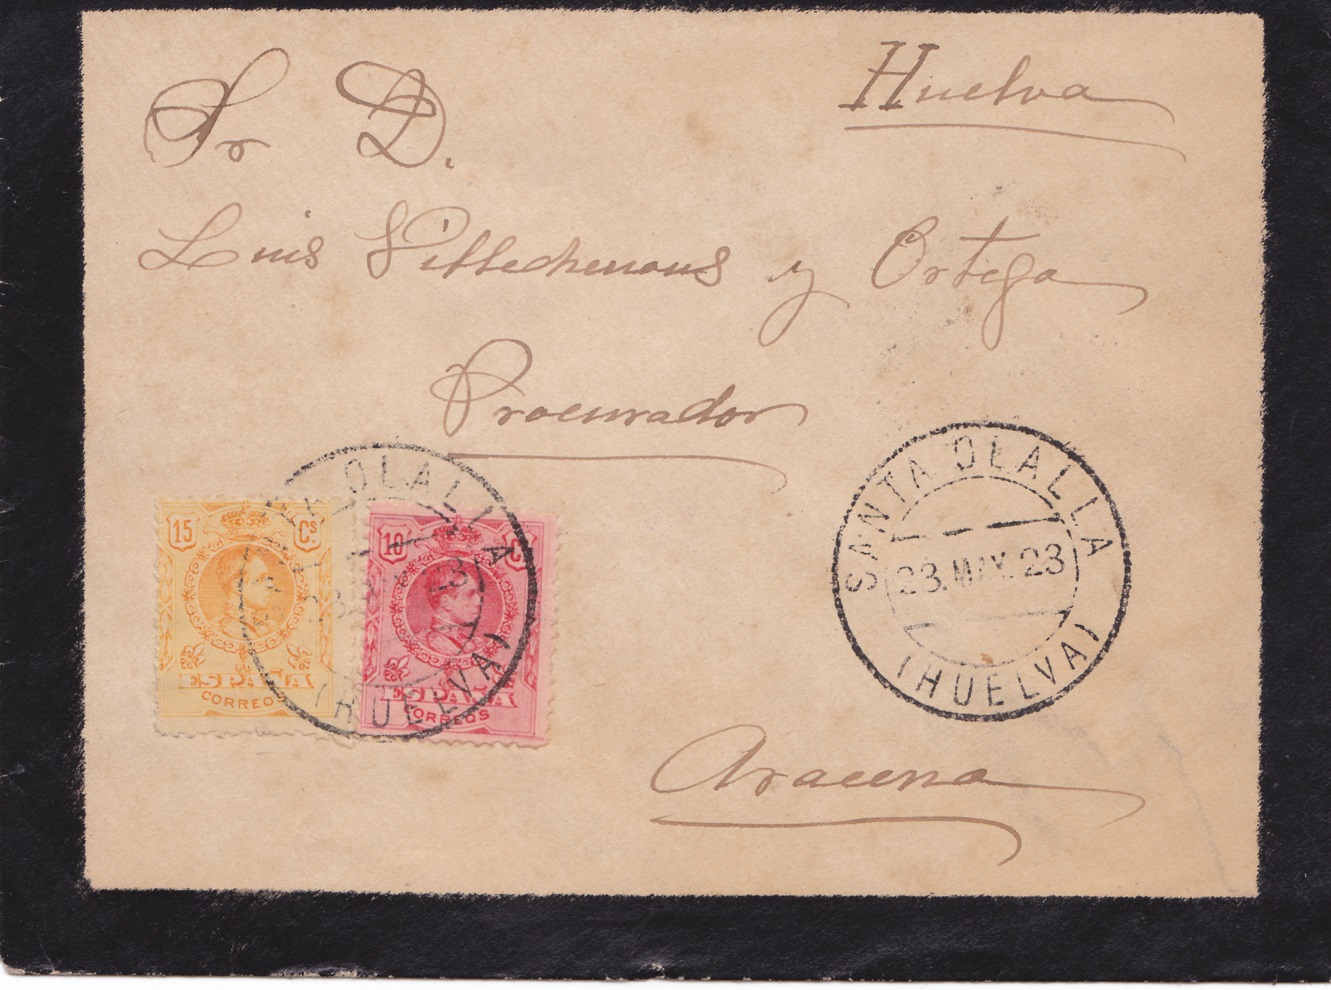 Huelva
Sr D.
Luis Villechenous y Ortega
Procurador
SANTA OLALLA
23.MAY.23
(HUELVA)
15 Cs
ESPAÑA
CORREOS
10 Cs
ESPAÑA
CORREOS
SANTA OLALLA
23.MAY.23
(HUELVA)
Aracena